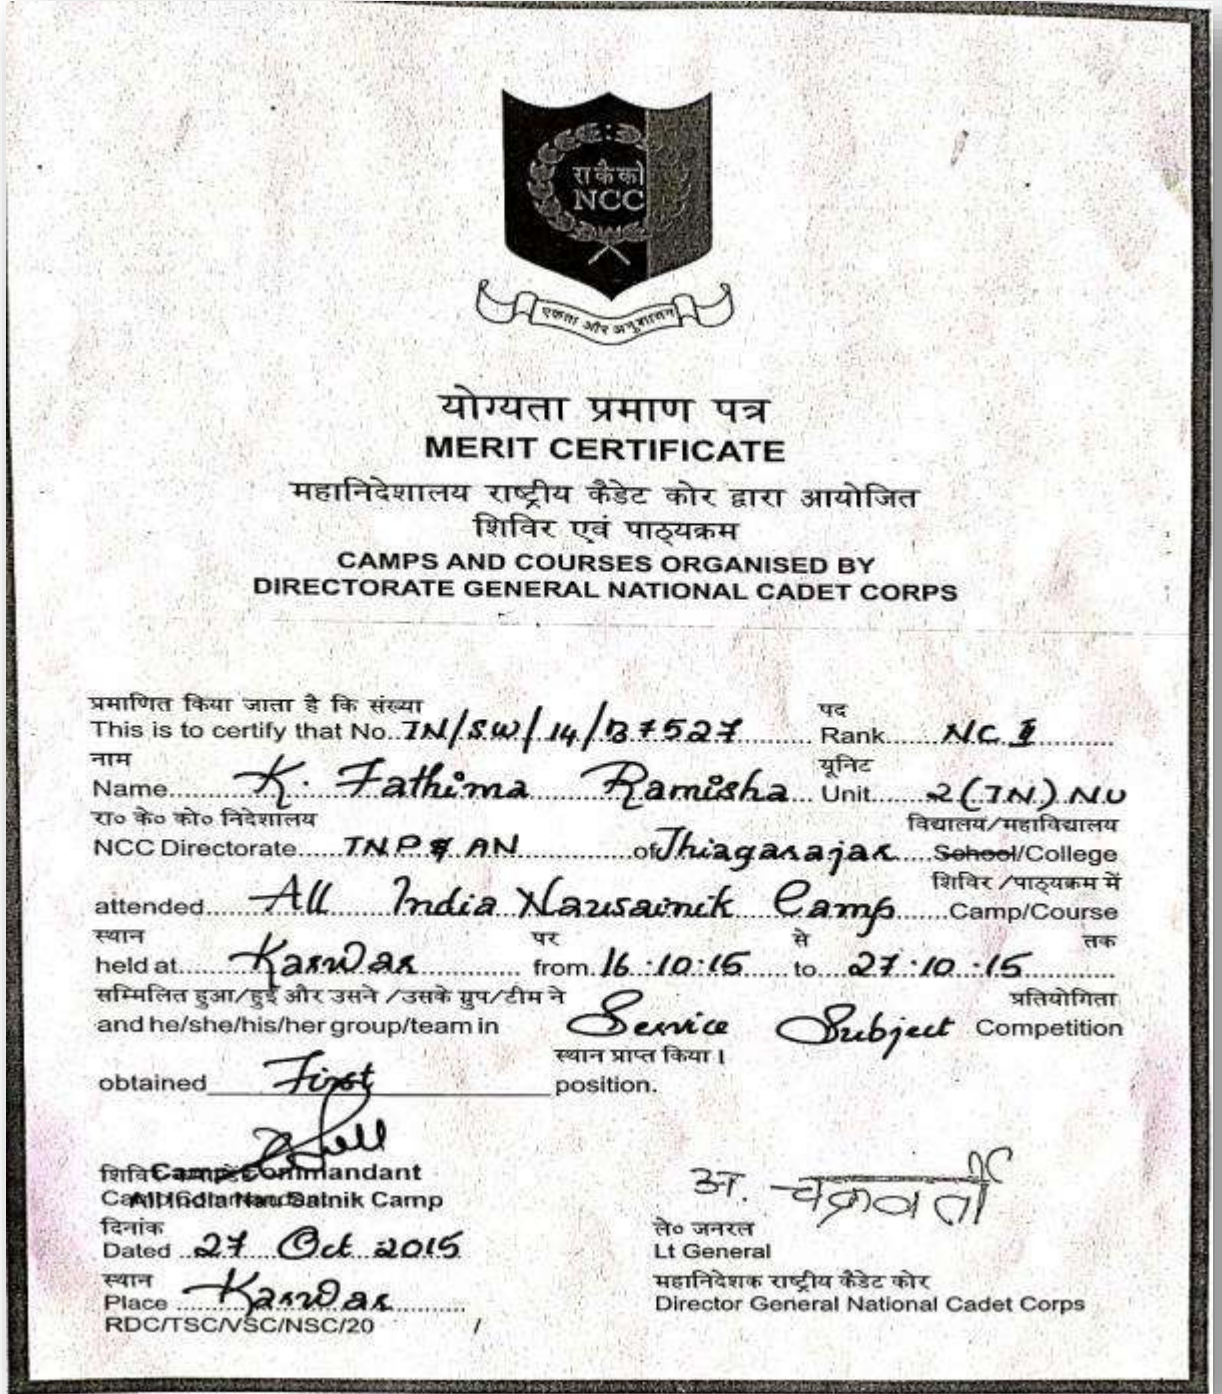 रा कै को
NCC
एकता और अनुशासन
योग्यता प्रमाण पत्र
MERIT CERTIFICATE
महानिदेशालय राष्ट्रीय कैडेट कोर द्वारा आयोजित
शिविर एवं पाठ्यक्रम
CAMPS AND COURSES ORGANISED BY
DIRECTORATE GENERAL NATIONAL CADET CORPS
प्रमाणित किया जाता है कि संख्या पद
This is to certify that No. TN/SW/14/B7527 Rank NC I
नाम यूनिट
Name K. Fathima Ramisha Unit 2(TN) NU
रा० के० को० निदेशालय विद्यालय/महाविद्यालय
NCC Directorate TNP & AN of Thiagarajar School/College
शिविर/पाठ्यक्रम में
attended All India Nausainik Camp Camp/Course
स्थान पर से तक
held at Karwar from 16.10.15 to 27.10.15
सम्मिलित हुआ/हुई और उसने/उसके ग्रुप/टीम ने प्रतियोगिता
and he/she/his/her group/team in Service Subject Competition
स्थान प्राप्त किया।
obtained First position.
Camp Commandant
All India Nau Sainik Camp
अ. चक्रवर्ती
दिनांक
Dated 27 Oct 2015
ले० जनरल
Lt General
स्थान
Place Karwar
RDC/TSC/VSC/NSC/20 /
महानिदेशक राष्ट्रीय कैडेट कोर
Director General National Cadet Corps